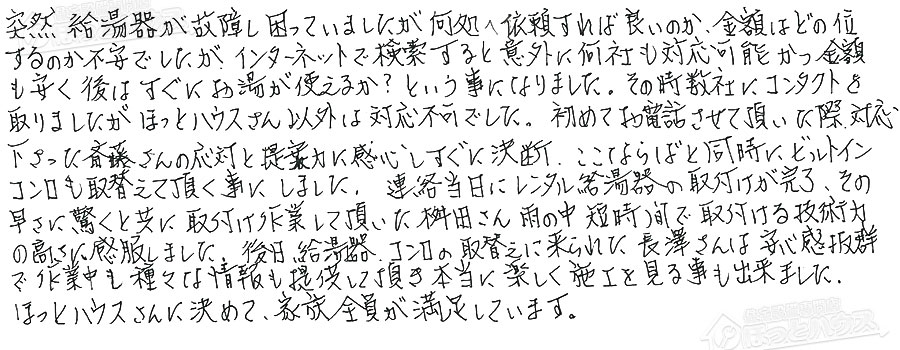 突然 給湯器が故障し困っていましたが何処へ依頼すれば良いのか、金額はどの位
するのか不安でしたが、インターネットで検索すると意外に何社も対応可能かつ金額
も安く後はすぐにお湯が使えるか?という事になりました。その時数社にコンタクトを
取りましたがほっとハウスさん以外は対応不可でした。初めてお電話させて頂いた際、対応
下さった斉藤さんの応対と提案力に感心しすぐに決断、ここならばと同時にビルトイン
コンロも取替えて頂く事にしました。連絡当日にレンタル給湯器の取付けが完了、その
早さに驚くと共に取付け作業して頂いた桝田さん雨の中短時間で取付ける技術力
の高さに感服しました。後日、給湯器、コンロの取替えに来られた長澤さんは安心感抜群
で作業中も種々な情報も提供して頂き本当に楽しく施工を見る事も出来ました。
ほっとハウスさんに決めて、家族全員が満足しています。
ほっとハウス